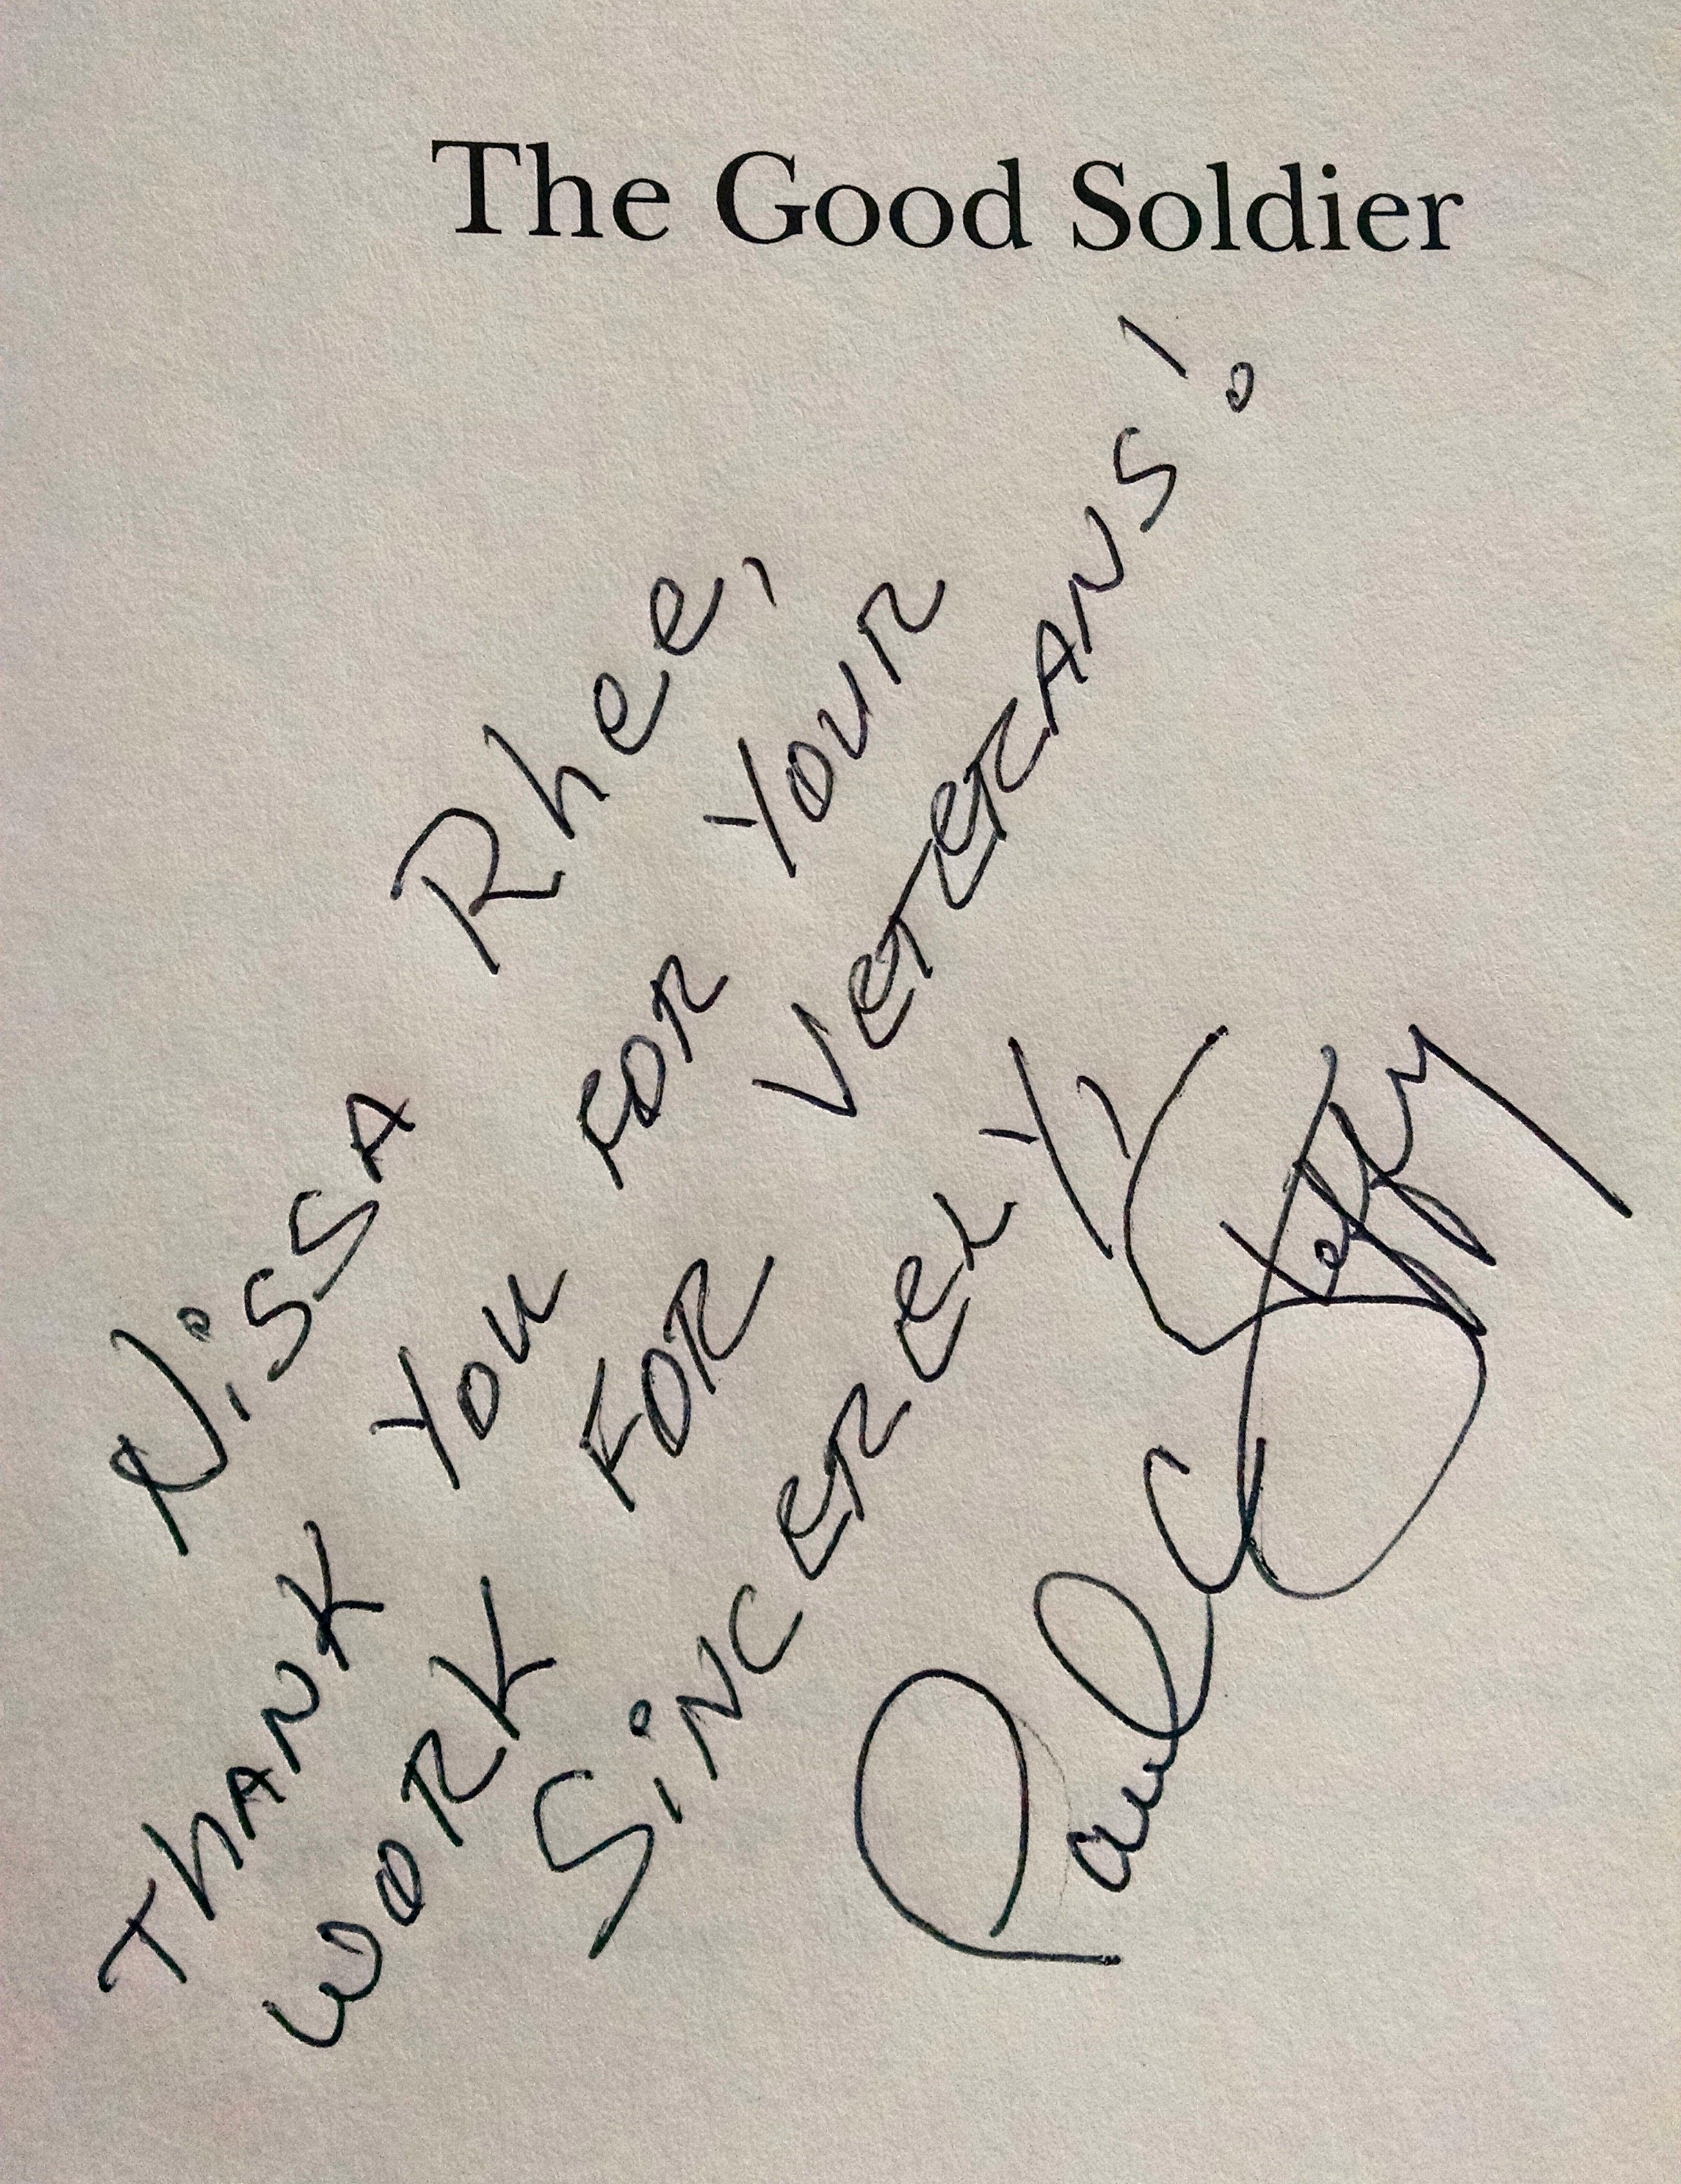 The Good Soldier
Nissa Rhee,
THANK YOU FOR YOUR
WORK FOR VETERANS!
SINCERELY,
Paul Steffy